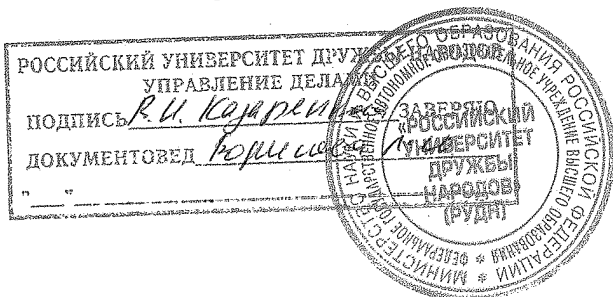 РОССИЙСКИЙ УНИВЕРСИТЕТ ДРУЖБЫ НАРОДОВ
УПРАВЛЕНИЕ ДЕЛАМИ
ПОДПИСЬ ЗАВЕРЯЮ
ДОКУМЕНТОВЕД
" "
МИНИСТЕРСТВО НАУКИ И ВЫСШЕГО ОБРАЗОВАНИЯ РОССИЙСКОЙ ФЕДЕРАЦИИ
ФЕДЕРАЛЬНОЕ ГОСУДАРСТВЕННОЕ АВТОНОМНОЕ ОБРАЗОВАТЕЛЬНОЕ УЧРЕЖДЕНИЕ ВЫСШЕГО ОБРАЗОВАНИЯ
«РОССИЙСКИЙ
УНИВЕРСИТЕТ
ДРУЖБЫ
НАРОДОВ»
(РУДН)